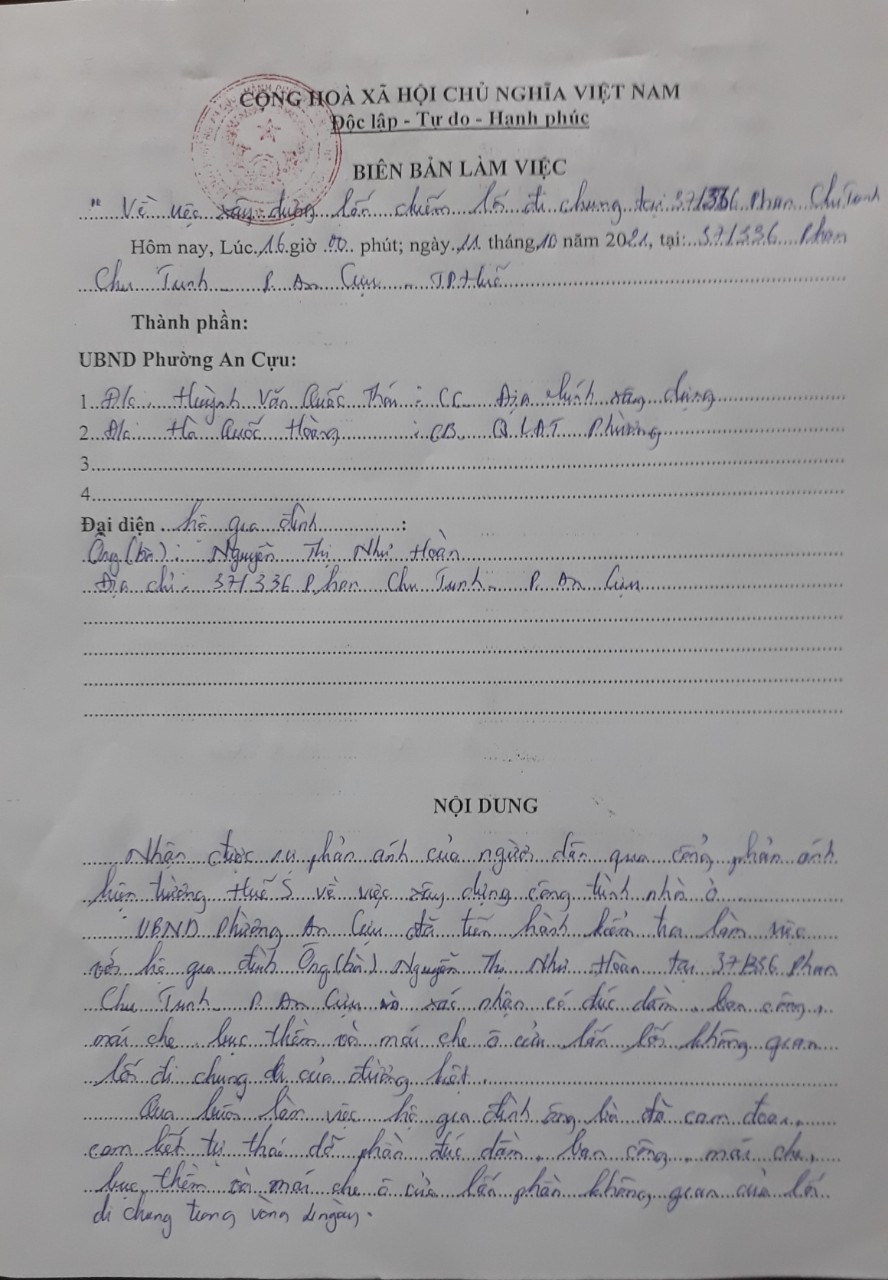 CỘNG HOÀ XÃ HỘI CHỦ NGHĨA VIỆT NAM
Độc lập - Tự do - Hạnh phúc
BIÊN BẢN LÀM VIỆC
" Về việc xây dựng lấn chiếm lối đi chung tại 37/336 Phan Chu Trinh
Hôm nay, Lúc 16 giờ 00 phút; ngày 11 tháng 10 năm 2021, tại: 37/336 Phan
Chu Trinh P. An Cựu - TP Huế
Thành phần:
UBND Phường An Cựu:
1. Đ/c: Huỳnh Văn Quốc Thái : CC Địa chính xây dựng
2. Đ/c: Hà Quốc Hoàng : CB QLĐT Phường
3
4
Đại diện hộ gia đình :
Ông (bà): Nguyễn Thị Như Hoàn
Địa chỉ: 37/336 Phan Chu Trinh - P. An Cựu
NỘI DUNG
Nhận được sự phản ánh của người dân qua cổng phản ánh
hiện trường Huế S về việc xây dựng công trình nhà ở
UBND Phường An Cựu đã tiến hành kiểm tra làm việc
với hộ gia đình Ông (bà) Nguyễn Thị Như Hoàn tại 37/336 Phan
Chu Trinh P. An Cựu và xác nhận có đúc dầm, ban công,
mái che, bục thềm và mái che ô cửa lấn lối không gian
lối đi chung đi của đường kiệt.
Qua buổi làm việc hộ gia đình ông bà đã cam đoan,
cam kết tự tháo dỡ phần đúc dầm, ban công, mái che,
bục thềm và mái che ô cửa lấn phần không gian của lối
đi chung trong vòng ngày.